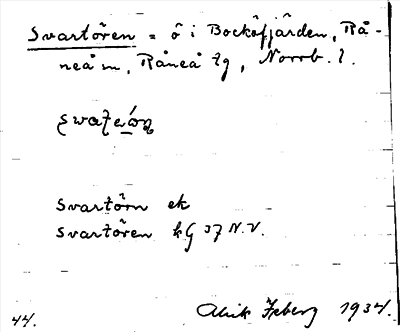 Svartören = ö i Bocköfjärden, Rå-
neå sn, Råneå tg, Norrb. l.
Svartörn ek
Svartören kG 37 N.V.
44. Isberg 1934.